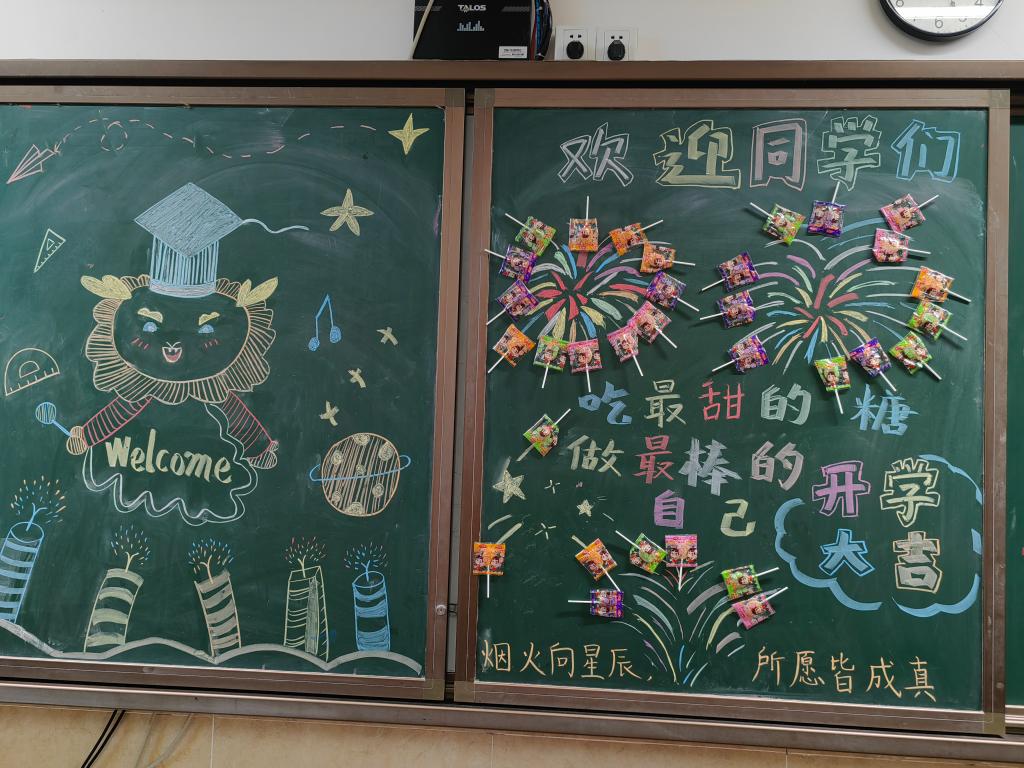 TALOS
欢迎同学们
Welcome
吃最甜的糖
做最棒的
自己
开学
大吉
烟火向星辰,
所愿皆成真